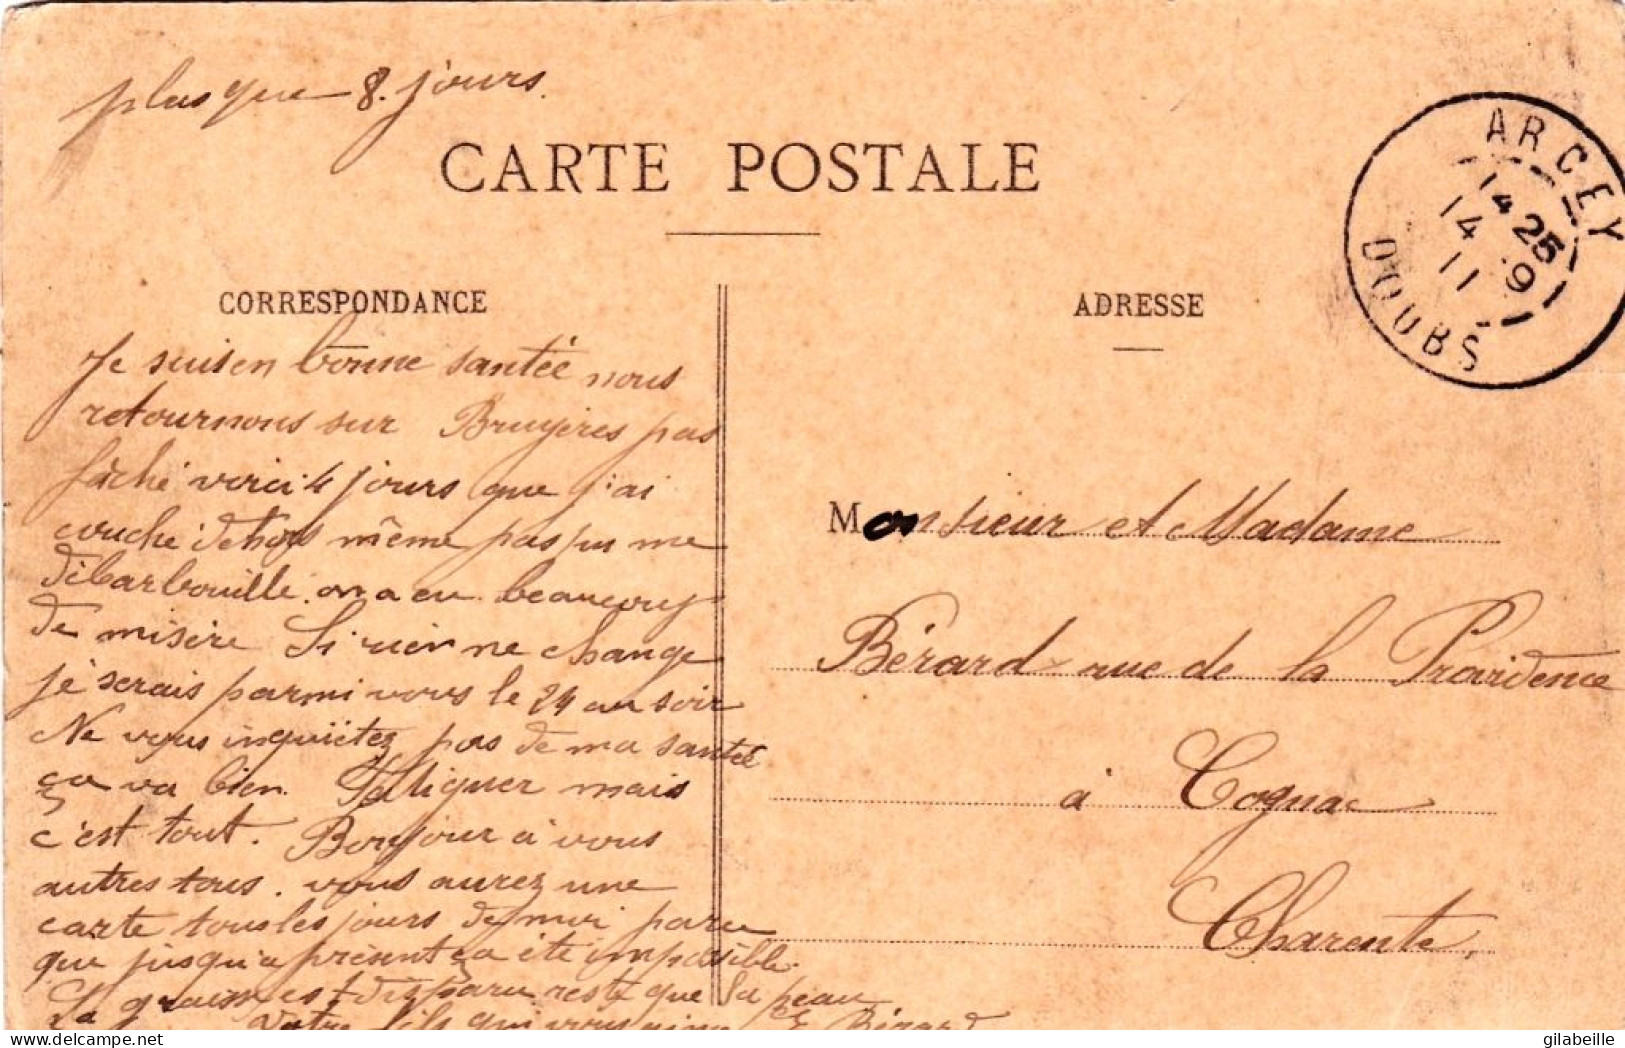 plus que 8 jours.
CARTE POSTALE
ARCEY
14 25
14 9
11
DOUBS
CORRESPONDANCE
ADRESSE
Je suis en bonne santée nous
retournons sur Bruyères pas
fâché voici 4 jours que j'ai
couché dehors même pas pu me
débarbouillé. on a eu beaucoup
de misère Si rien ne change
je serais parmi vous le 24 au soir
Ne vous inquiètez pas de ma santée
ça va bien. Fatiguer mais
c'est tout. Bonjour à vous
autres tous. vous aurez une
carte tous les jours de moi parce
que jusqu'a présent ça été impossible.
La graisse est disparu reste que la peau
Votre fils qui vous aime E Bérard
Monsieur et Madame
Bérard rue de la Providence
à Cognac
Charente
delcampe.net
gilabeille